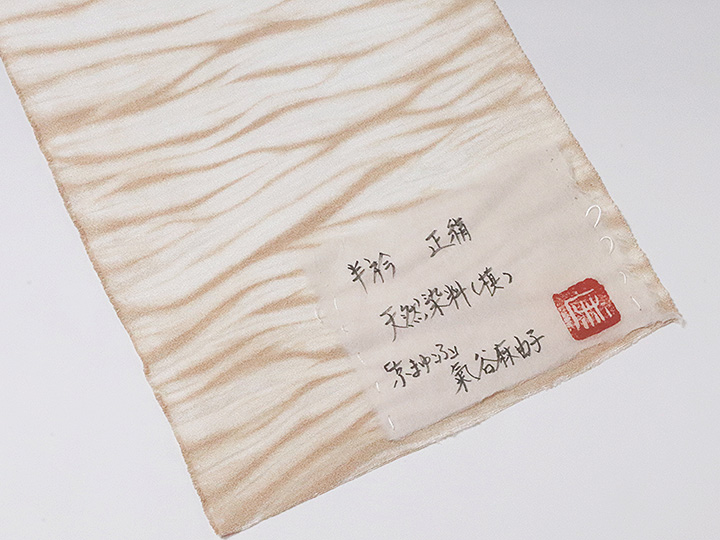 半衿 正絹
天然染料(槙)
京まゆこふ
氣谷麻由子
麻